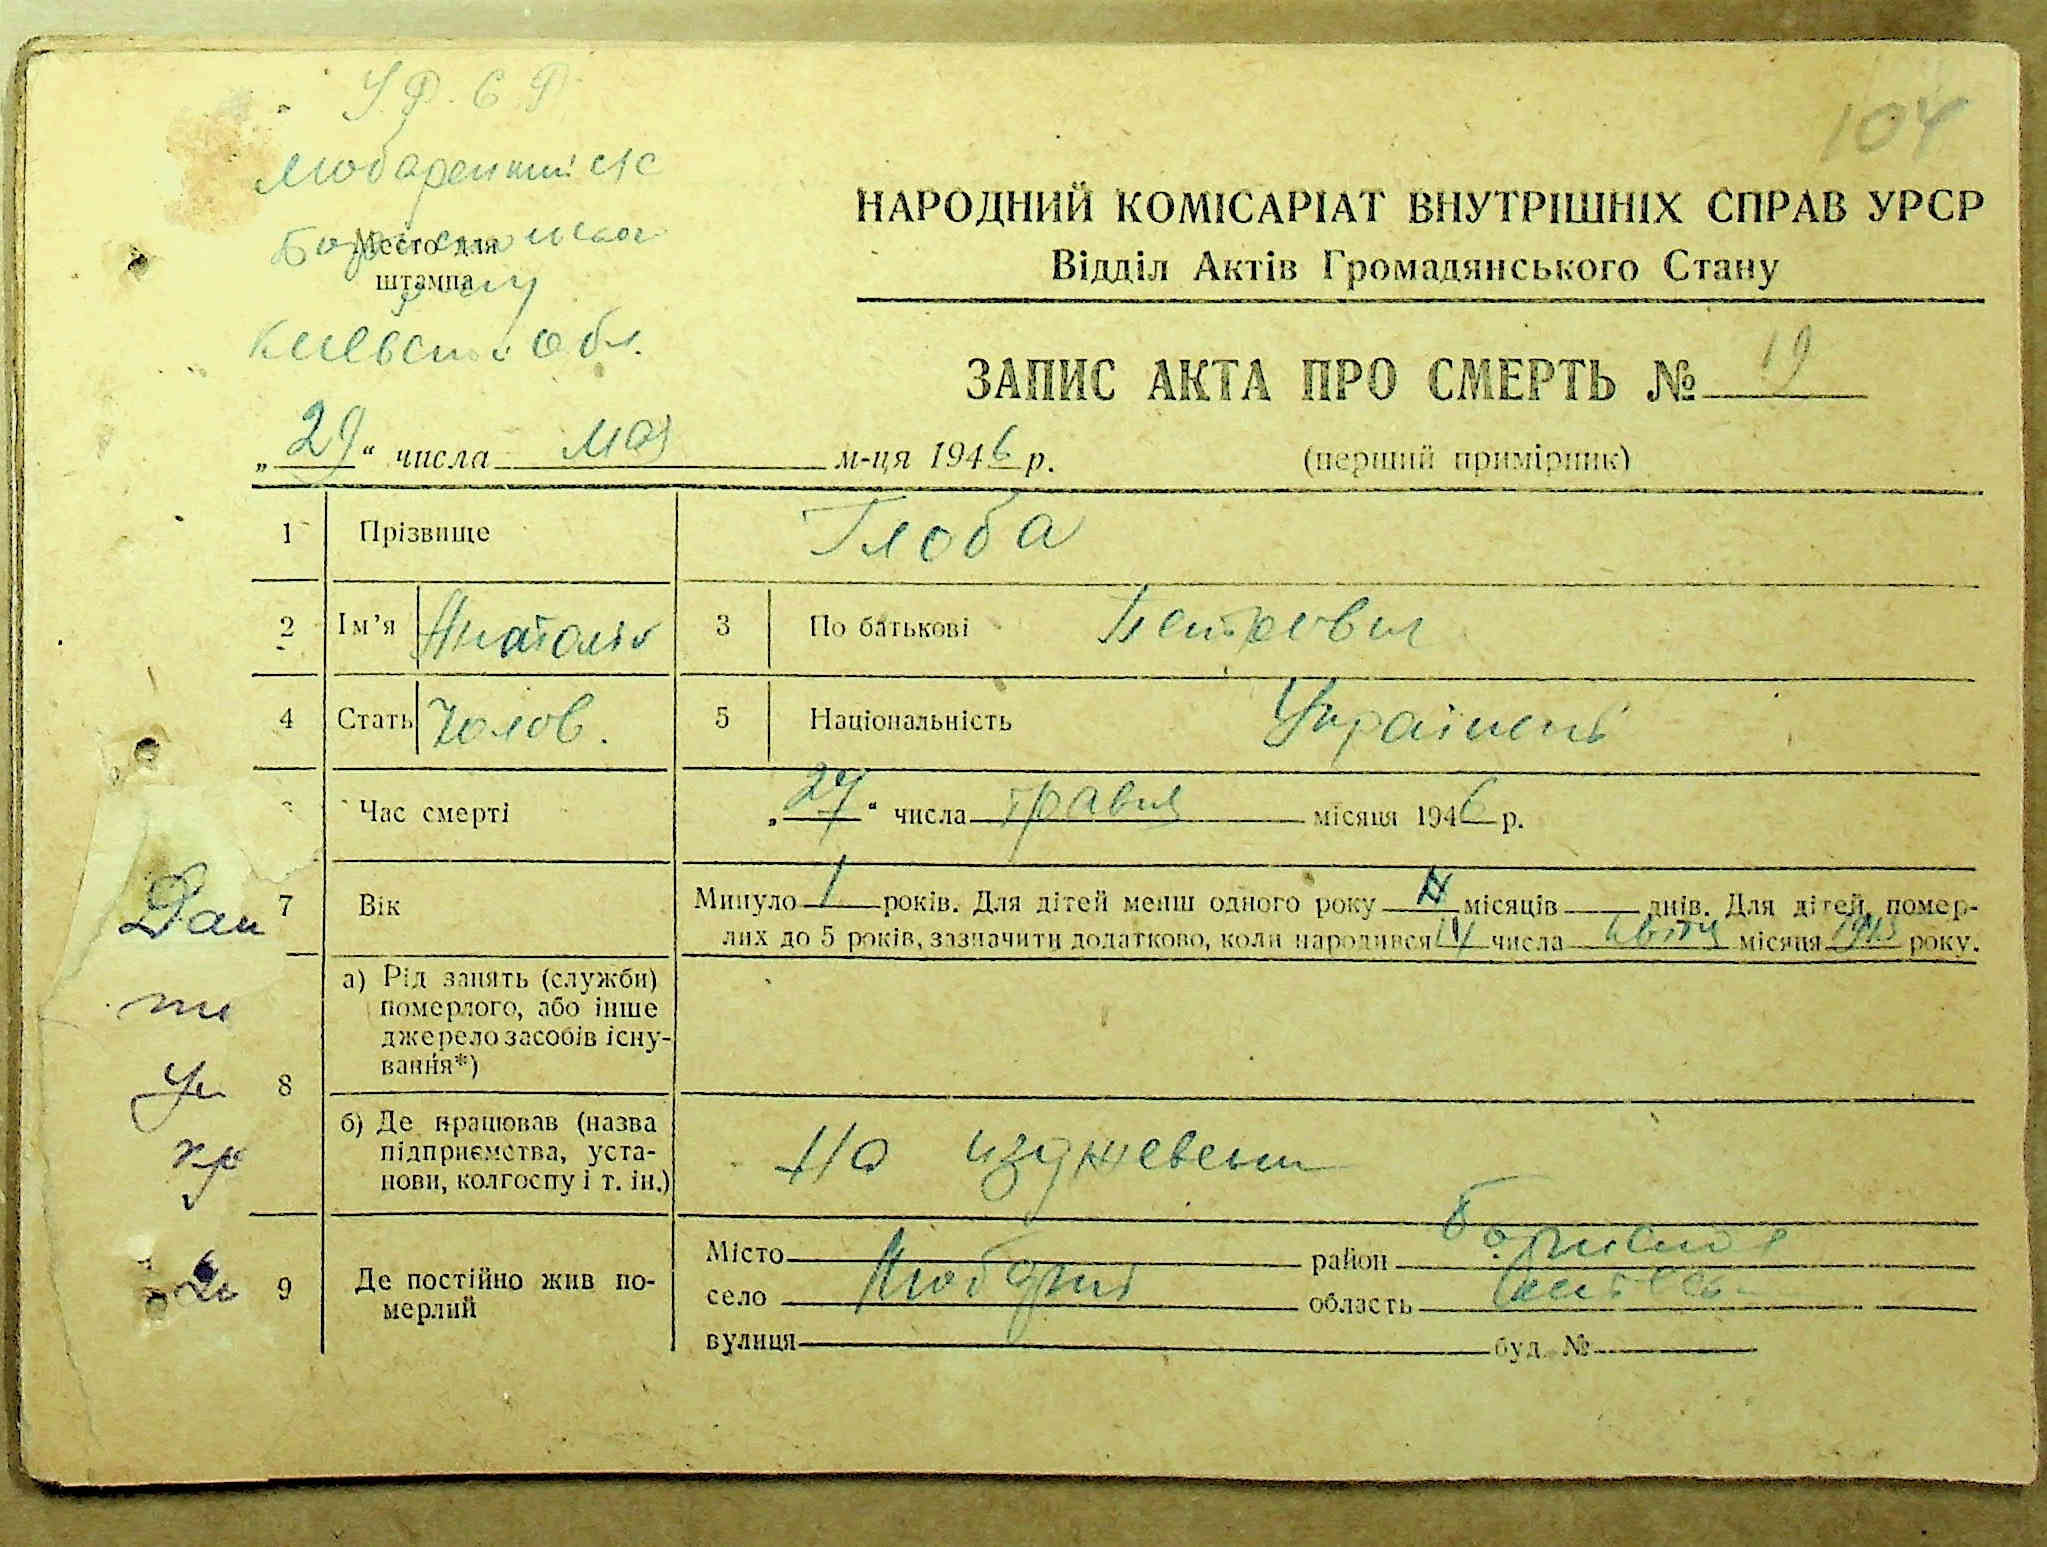 У.Р.С.Р.
104
НАРОДНИЙ КОМІСАРІАТ ВНУТРІШНІХ СПРАВ УРСР
Відділ Актів Громадянського Стану
Место для
штампа
обл.
ЗАПИС АКТА ПРО СМЕРТЬ № 19
„29“ числа мая м-ця 1946 р.
(перший примірник)
1 Прізвище Глоба
2 Ім'я Анатолій 3 По батькові Петрович
4 Стать Чолов. 5 Національність Українець
Час смерті „27“ числа травня місяця 1946 р.
7 Вік Минуло 1 років. Для дітей менш одного року місяців днів. Для дітей, помер-
лих до 5 років, зазначити додатково, коли народився числа місяця 1945 року.
8 а) Рід занять (служби)
померлого, або інше
джерело засобів існу-
вання*)
б) Де працював (назва
підприємства, уста-
нови, колгоспу і т. ін.)
На
9 Де постійно жив по-
мерлий
Місто район
село Любарці область
вулиця буд. №